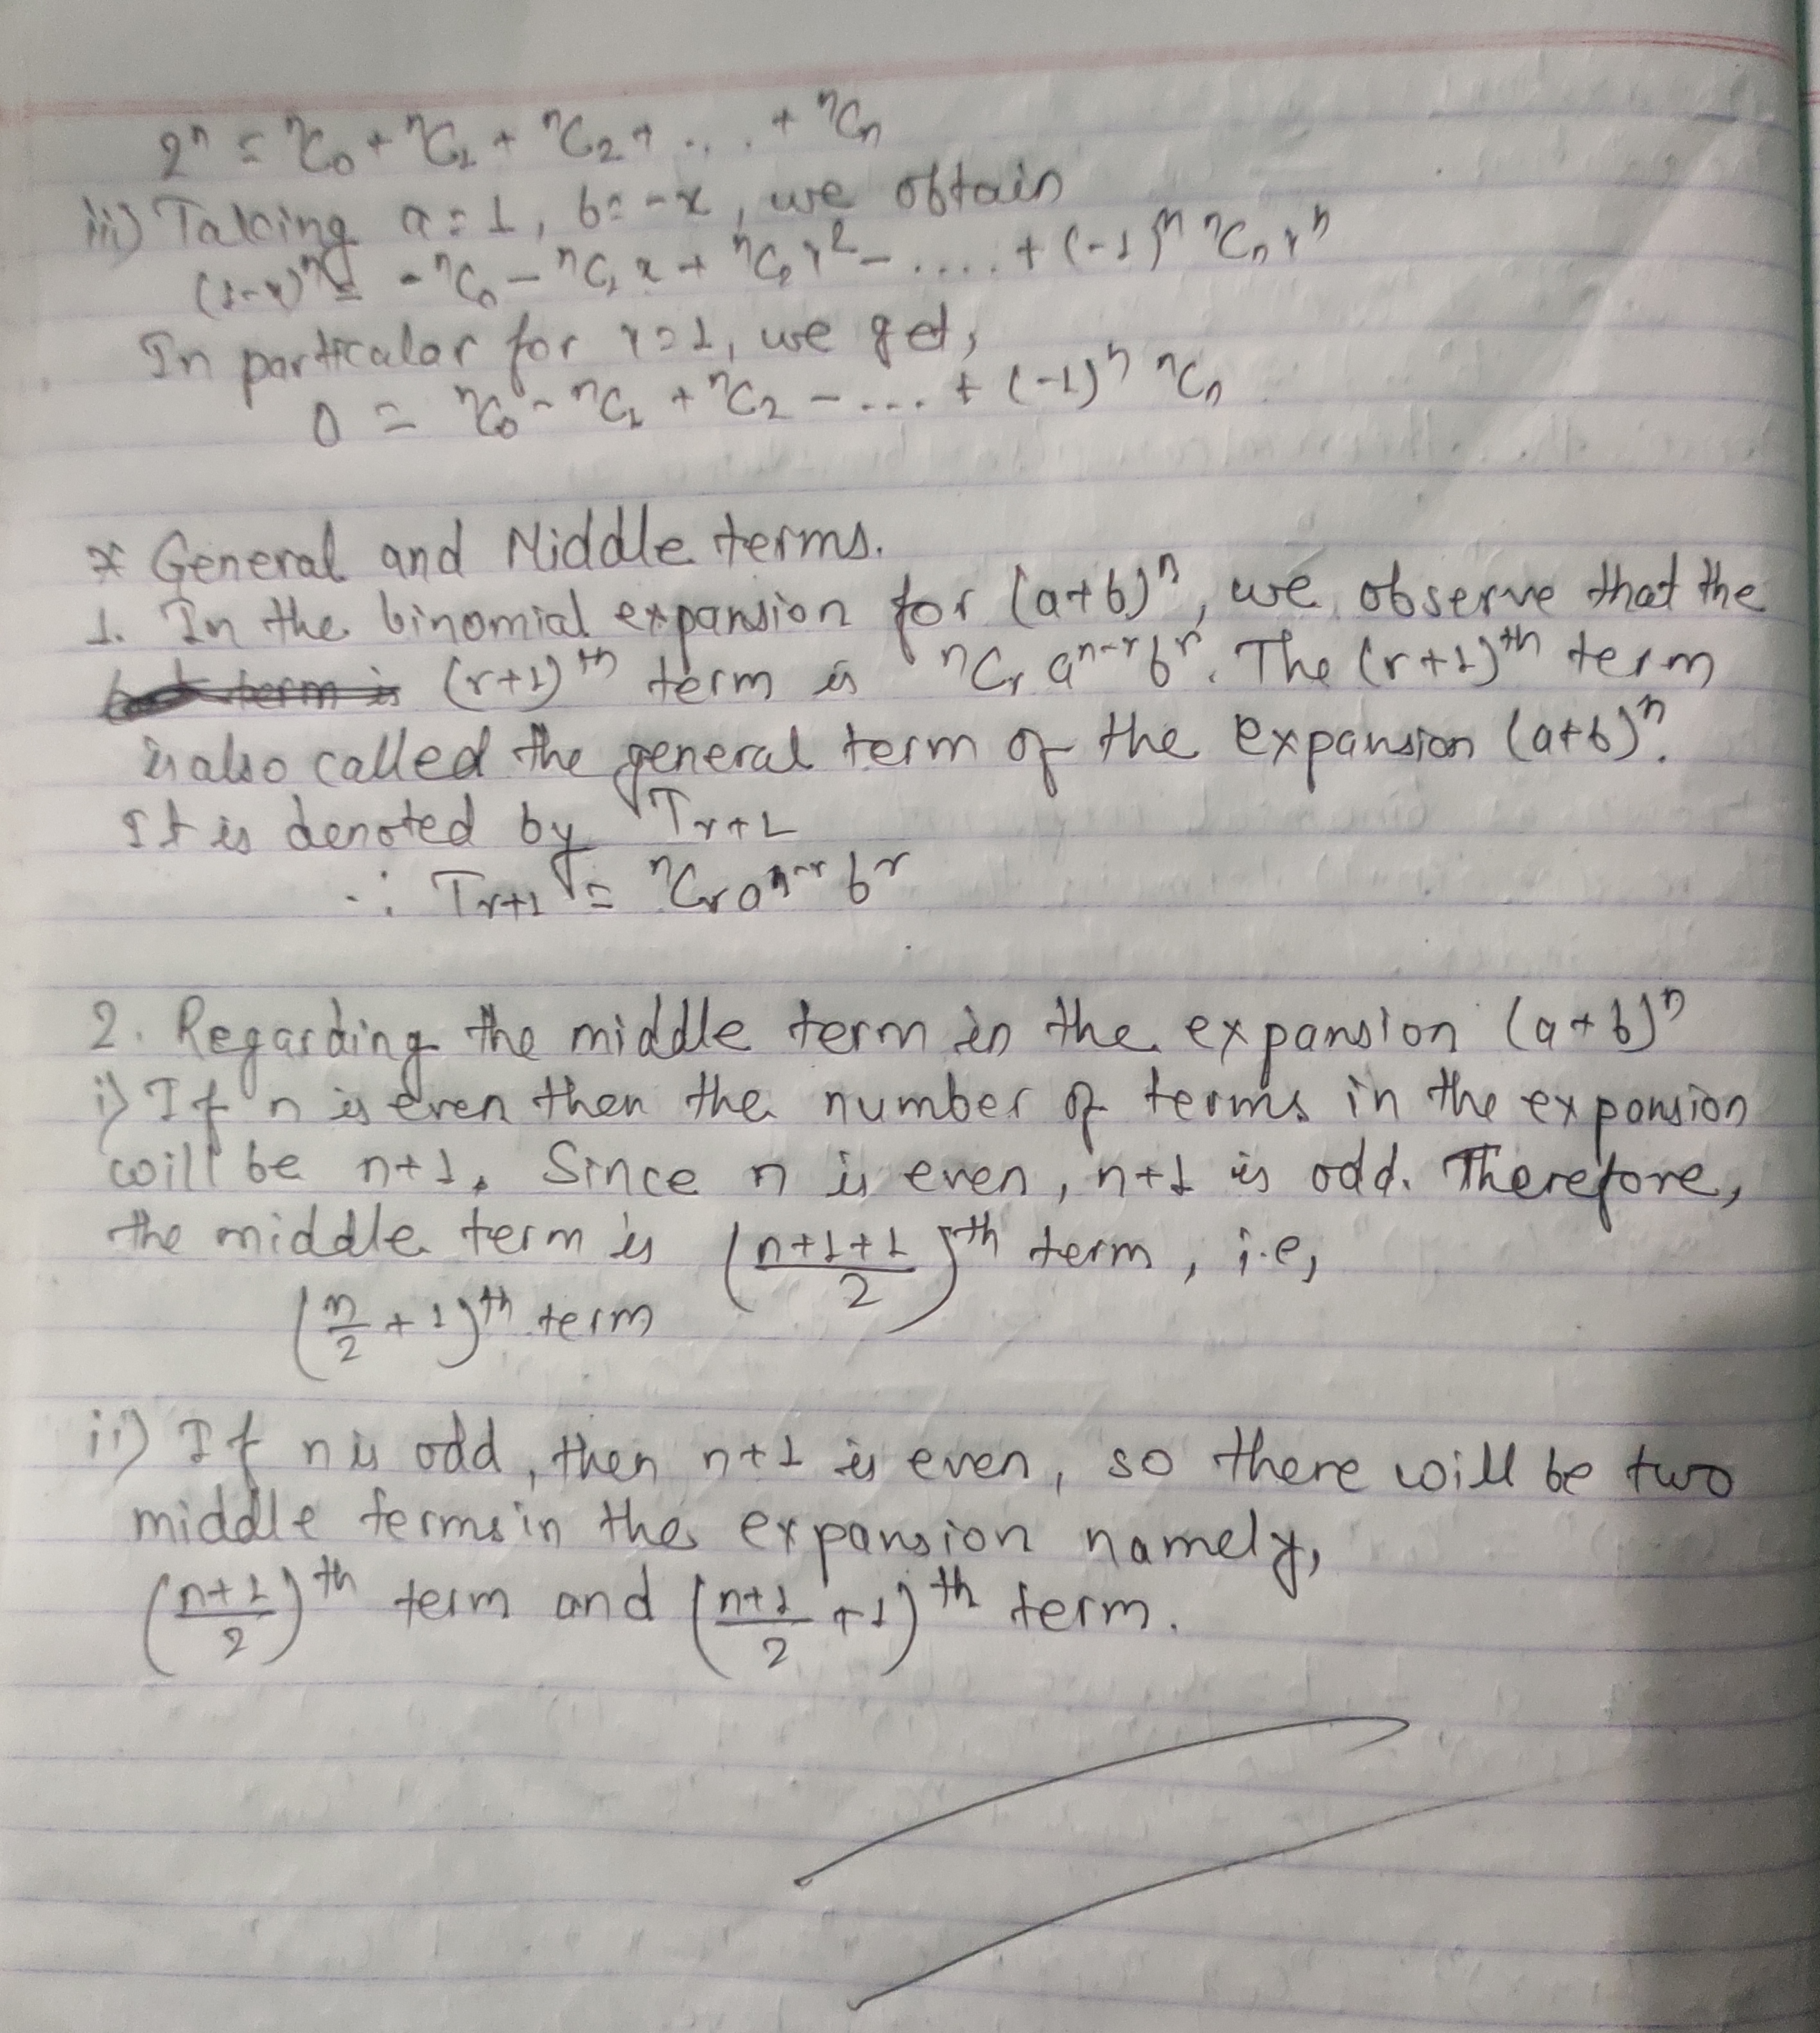 2ⁿ = ⁿC₀ + ⁿC₁ + ⁿC₂ + ... + ⁿCₙ
iii) Taking a = 1, b = -x, we obtain
(1-x)ⁿ = -ⁿC₀ - ⁿC₁x + ⁿC₂x² - ..... + (-1)ⁿ ⁿCₙxⁿ
In particular for x=1, we get,
0 = ⁿC₀ - ⁿC₁ + ⁿC₂ - .... + (-1)ⁿ ⁿCₙ
* General and Middle terms.
1. In the binomial expansion for (a+b)ⁿ, we observe that the
term is (r+1)ᵗʰ term is ⁿCᵣ aⁿ⁻ʳbʳ. The (r+1)ᵗʰ term
is also called the general term of the expansion (a+b)ⁿ.
It is denoted by Tᵣ₊₁
∴ Tᵣ₊₁ = ⁿCᵣaⁿ⁻ʳbʳ
2. Regarding the middle term in the expansion (a+b)ⁿ
i) If n is even then the number of terms in the expansion
will be n+1. Since n is even, n+1 is odd. Therefore,
the middle term is ((n+1+1)/2)ᵗʰ term, i.e,
(n/2 + 1)ᵗʰ term
ii) If n is odd, then n+1 is even, so there will be two
middle terms in the expansion namely,
((n+1)/2)ᵗʰ term and ((n+1)/2 + 1)ᵗʰ term.